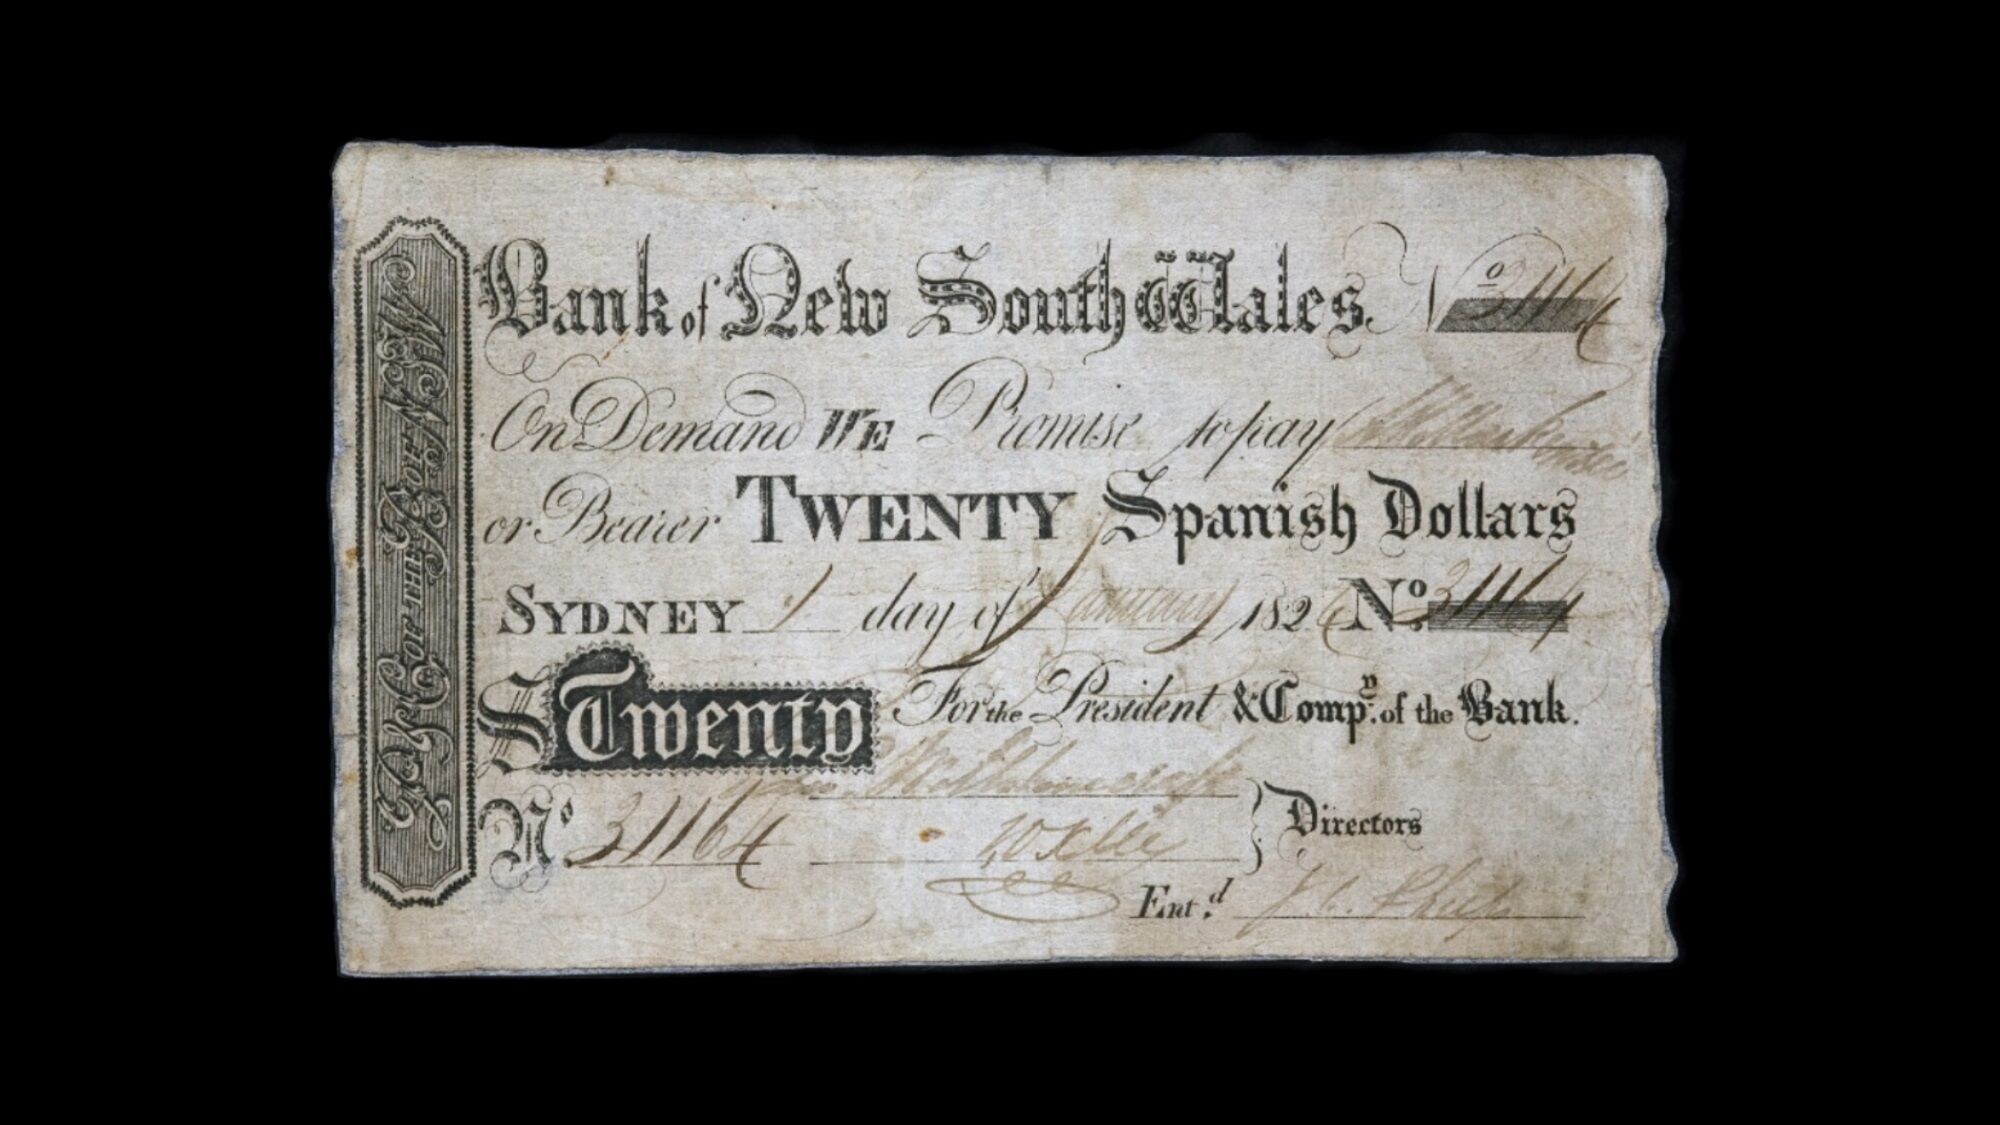 Bank of New South Wales. No 31164
On Demand WE Promise to pay
or Bearer TWENTY Spanish Dollars
SYDNEY 1 day of January 1826 No. 31164
S Twenty For the President & Compy. of the Bank.
No. 31164
Directors
Entd.
Pst & Co OF THE B. OF N.S.W.